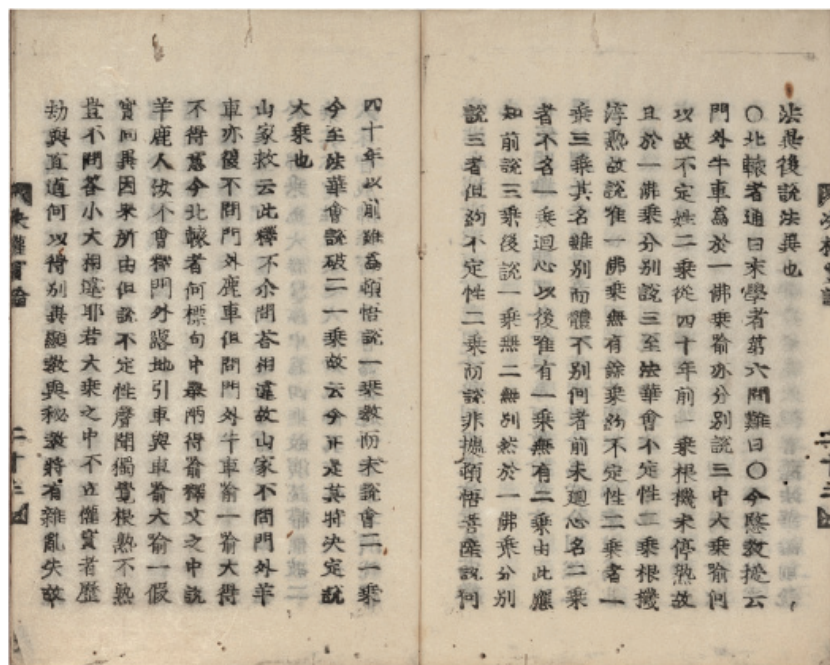 法異後説法異也
〇北轅者通曰末學者第六問難曰〇今驗教授云
門外牛車為於一佛乘喻亦分別説三中大乘喻何
以故不定姓二乘從四十年前一乘根機未停熟故
且於一佛乘分別説三至法華會不定性二乘根機
淳熟故説唯一佛乘無有餘乘約不定性二乘者一
乘三乘其名雖別而體不別何者前未迴心名二乘
者不名一乘迴心以後唯有一乘無有二乘由此應
知前説三乘後説一乘無二無別然於一佛乘分別
説三者但約不定性二乘而説非據頓悟菩薩説何
四十年以前雖為頓悟説一乘教而未説會二一乘
今至法華會説破二一乘故云今正是其時決定説
大乘也
山家救云此釋不尒問答相違故山家不問門外羊
車亦復不問門外鹿車但問門外牛車喻一喻大得
不得意今北轅者何標句中舉兩得喻釋文之中説
羊鹿人汝不會釋門外露地引車與車喻大喻一假
實同異因果所由但説不定性聲聞獨覺根熟不熟
豈不問答小大相違耶若大乘之中不立權實者歷
劫與直道何以得別與顯教與秘教將有雜亂失故
決權實論
二十三